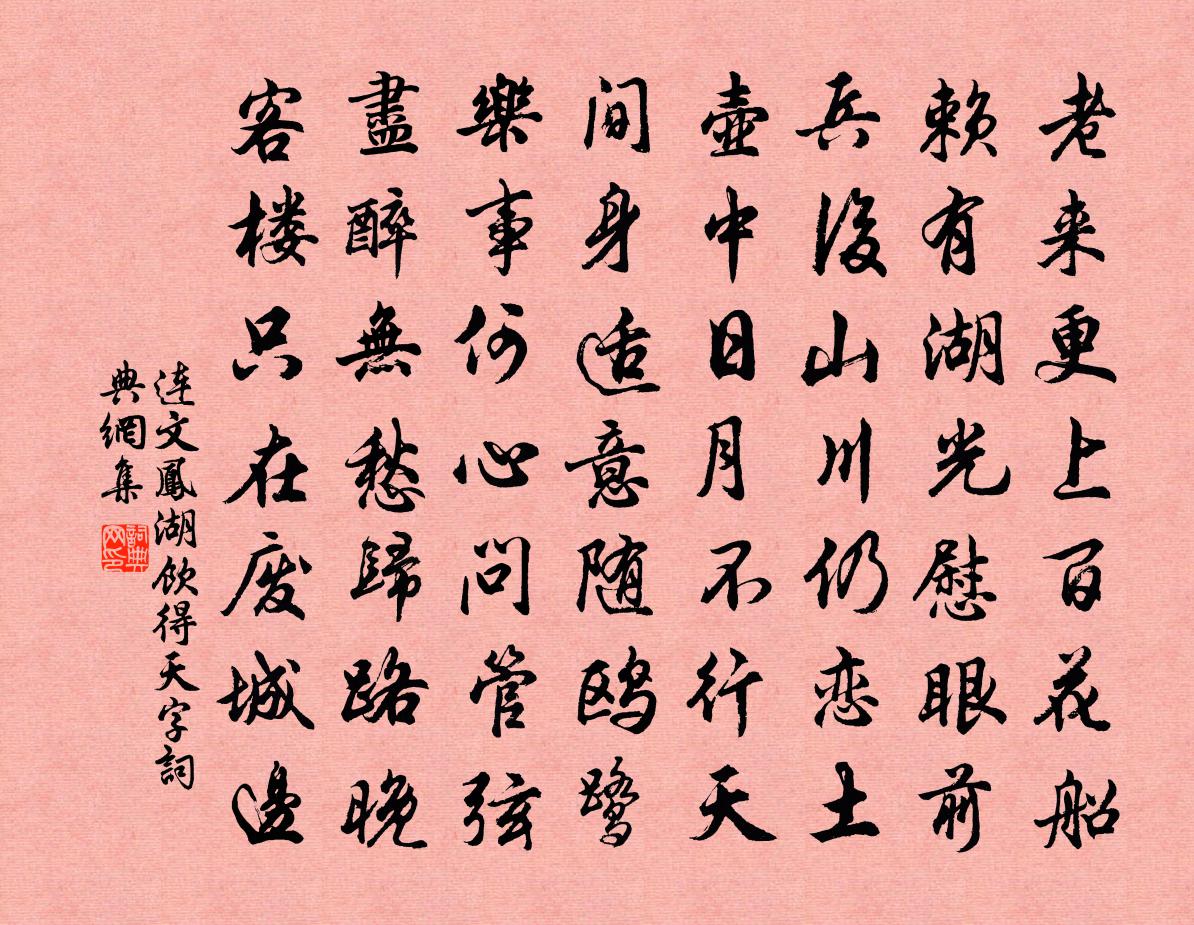 老来更上百花船
赖有湖光慰眼前
兵後山川仍恋土
壷中日月不行天
间身适意随鸥鹭
樂事何心问管弦
盡醉無愁歸路晚
客楼只在废城邊
连文鳳湖飲得天字詞
典網集
詞典
网印